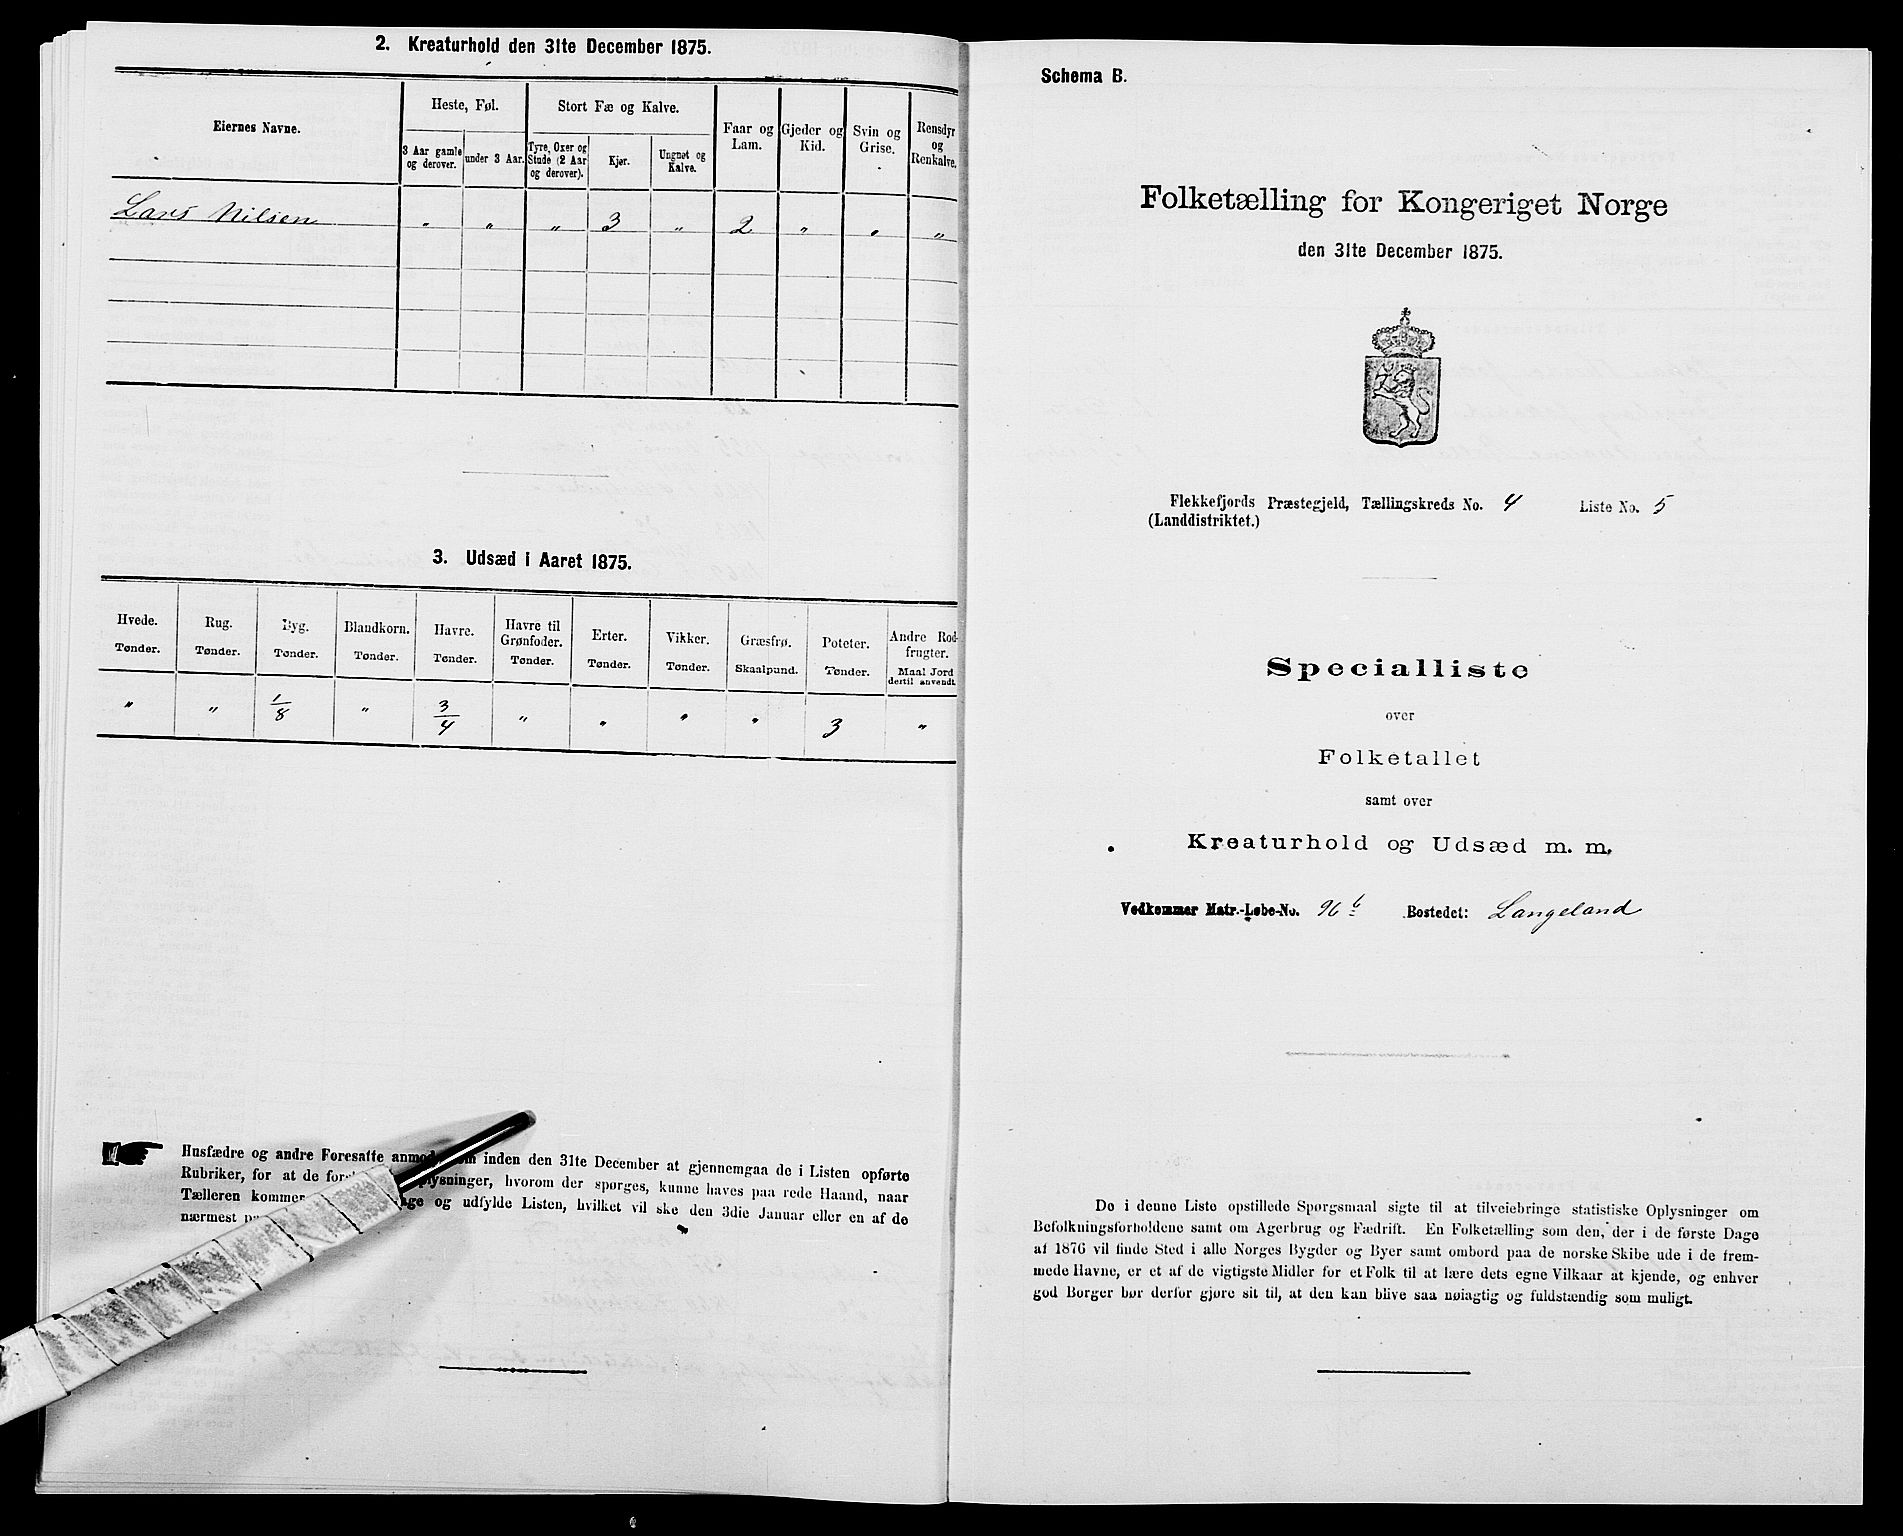 2. Kreaturhold den 31te December 1875.
Eiernes Navne.
Heste, Føl.
Stort Fæ og Kalve.
Faar og Lam.
Gjeder og Kid.
Svin og Grise.
Rensdyr og Renkalve.
3 Aar gamle og derover.
under 3 Aar.
Tyre, Oxer og Stude (2 Aar og derover).
Kjør.
Ungnøt og Kalve.
Lars Nilsen " " " 3 " 2 " " "
3. Udsæd i Aaret 1875.
Hvede. Rug. Byg. Blandkorn. Havre. Havre til Grønfoder. Erter. Vikker. Græsfrø. Poteter. Andre Rodfrugter.
Tønder. Tønder. Tønder. Tønder. Tønder. Tønder. Tønder. Tønder. Skaalpund. Tønder. Maal Jord dertil anvendt.
" " 1/8 " 3/4 " " " " 3 "
Husfædre og andre Foresatte inden den 31te December at gjennemgaa de i Listen opførte
Rubriker, for at de hvorom der spørges, kunne haves paa rede Haand, naar
Tælleren kommer og udfylde Listen, hvilket vil ske den 3die Januar eller en af de
nærmest
Schema B.
Folketælling for Kongeriget Norge
den 31te December 1875.
Flekkefjords Præstegjeld, Tællingskreds No. 4 Liste No. 5
(Landdistriktet.)
Specialliste
over
Folketallet
samt over
Kreaturhold og Udsæd m. m.
Vedkommer Matr.-Løbe-No. 96 b Bostedet: Langeland
De i denne Liste opstillede Spørgsmaal sigte til at tilveiebringe statistiske Oplysninger om
Befolkningsforholdene samt om Agerbrug og Fædrift. En Folketælling som den, der i de første Dage
af 1876 vil finde Sted i alle Norges Bygder og Byer samt ombord paa de norske Skibe ude i de frem-
mede Havne, er et af de vigtigste Midler for et Folk til at lære dets egne Vilkaar at kjende, og enhver
god Borger bør derfor gjøre sit til, at den kan blive saa nøiagtig og fuldstændig som muligt.